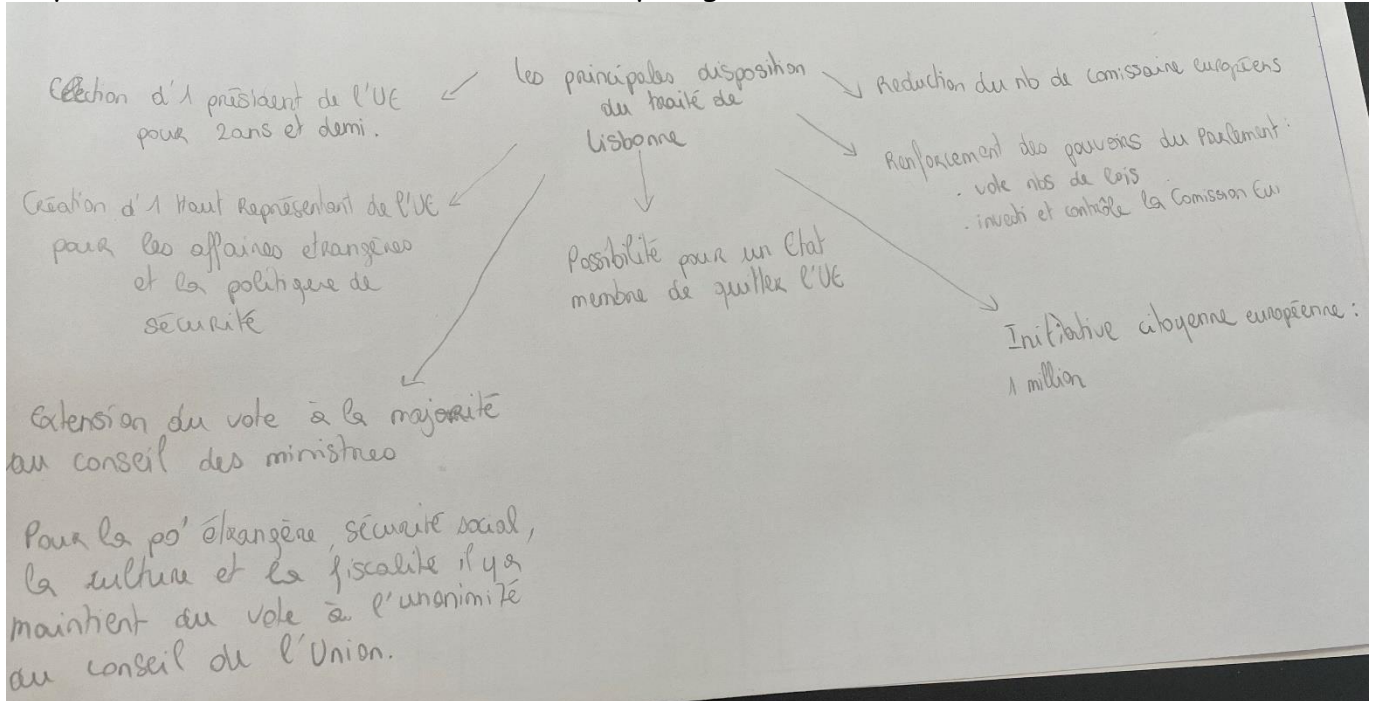 les principales disposition
du traité de
Lisbonne
Election d'1 président de l'UE
pour 2ans et demi.
Création d'1 Haut Représentant de l'UE
pour les affaires etrangères
et la politique de
sécurité
Extension du vote à la majorité
au conseil des ministres
Pour la po' étrangère, sécurité social,
la culture et la fiscalité il y a
maintient du vote à l'unanimité
au conseil de l'Union.
Possibilité pour un Etat
membre de quitter l'UE
Reduction du nb de comissaire européens
Renforcement des pouvoirs du Parlement :
. vote nbs de lois
. investi et contrôle la Comission Eur
Initiative citoyenne européenne :
1 million